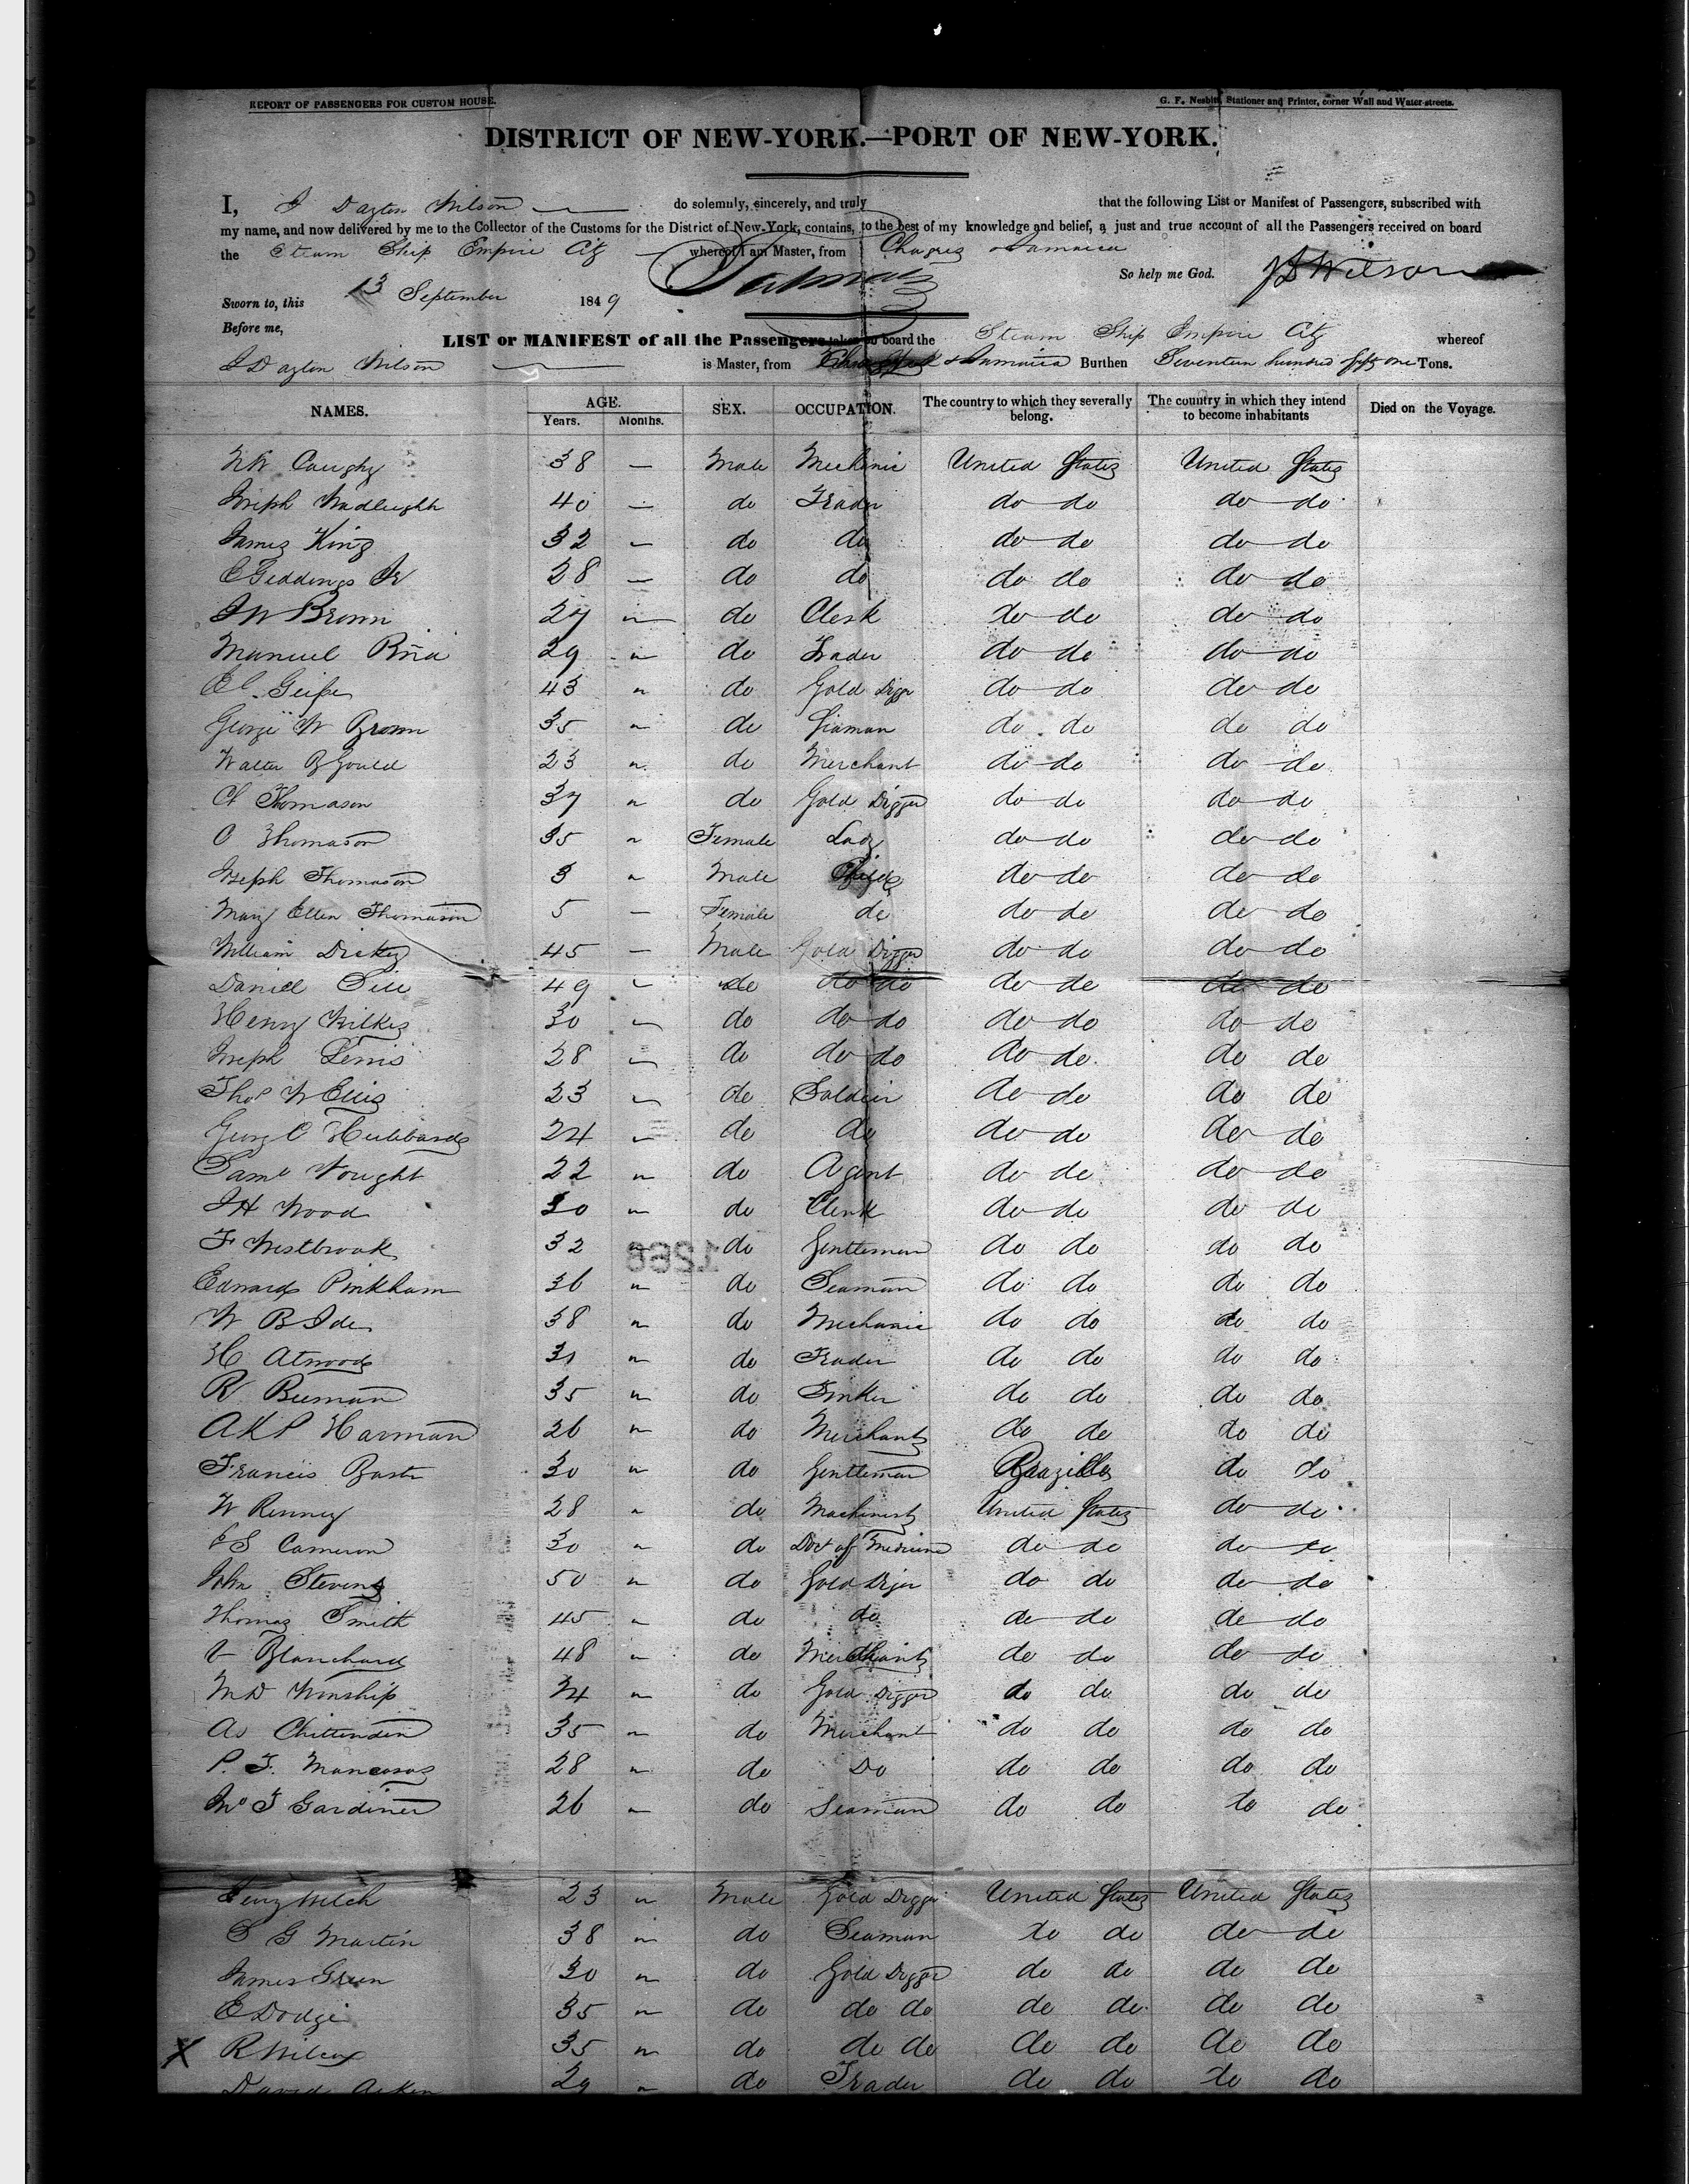 REPORT OF PASSENGERS FOR CUSTOM HOUSE.
G. F. Nesbitt, Stationer and Printer, corner Wall and Water-streets.
DISTRICT OF NEW-YORK.—PORT OF NEW-YORK.
I, J Dayton Wilson do solemnly, sincerely, and truly that the following List or Manifest of Passengers, subscribed with
my name, and now delivered by me to the Collector of the Customs for the District of New-York, contains, to the best of my knowledge and belief, a just and true account of all the Passengers received on board
the Steam Ship Empire City whereof I am Master, from Chagres & Jamaica
So help me God. J D Wilson
Sworn to, this 13 September 1849
Before me,
LIST or MANIFEST of all the Passengers taken on board the Steam Ship Empire City whereof
J Dayton Wilson is Master, from & Jamaica Burthen Seventeen hundred fifty one Tons.
NAMES. AGE. Years. Months. SEX. OCCUPATION. The country to which they severally belong. The country in which they intend to become inhabitants Died on the Voyage.
Caughy 38 — Male Mechanic United States United States
Joseph 40 — do Trader do do do do
James King 32 — do do do do do do
C Giddings Jr 28 — do do do do do do
J W Brown 27 " do Clerk do do do do
Manuel Piña 29 " do Trader do do do do
43 " do Gold Diggr do do do do
George W Brown 35 " do Seaman do do do do
Walter B Gould 23 " do Merchant do do do do
Thomason 37 " do Gold Digger do do do do
C Thomason 35 " Female Lady do do do do
Joseph Thomason 3 " Male Child do do do do
Mary Ellen Thomason 5 — Female do do do do do
William Dickey 45 — Male Gold Digger do do do do
Daniel 49 " do do do do do do do
Henry Wilkes 30 " do do do do do do do
Joseph Lewis 28 " do do do do do do do
Thos W Ellis 23 " do Soldier do do do do
George C Hubbard 24 " do do do do do do
Saml Vought 22 " do Agent do do do do
J H Wood 30 " do Clerk do do do do
F Westbrook 32 " do Gentleman do do do do
1266
Edward Pinkham 36 " do Seaman do do do do
W B Ide 38 " do Mechanic do do do do
H Atwood 31 " do Trader do do do do
R Beeman 35 " do do do do do
A K P Harman 26 " do Merchant do do do do
Francis 30 " do Gentleman Brazills do do
W Kenney 28 " do Machinist United States do do
S Cameron 30 " do Doct of Medicine do do do do
John Stevens 50 " do Gold Diger do do do do
Thomas Smith 45 " do do do do do do
V Blanchard 48 " do Merchant do do do do
M D Winship 24 " do Gold Digger do do do do
As Chittenden 35 " do Merchant do do do do
P. F. 28 " do Do do do do do
Jno T Gardiner 26 " do Seaman do do do do
Welch 23 " Male Gold Digger United States United States
S G Martin 38 " do Seaman do do do do
James Green 30 " do Gold Digger do do do do
E Dodge 35 " do do do do do do do
X R Wilcox 35 " do do do do do do do
David Aiken 29 " do Trader do do do do